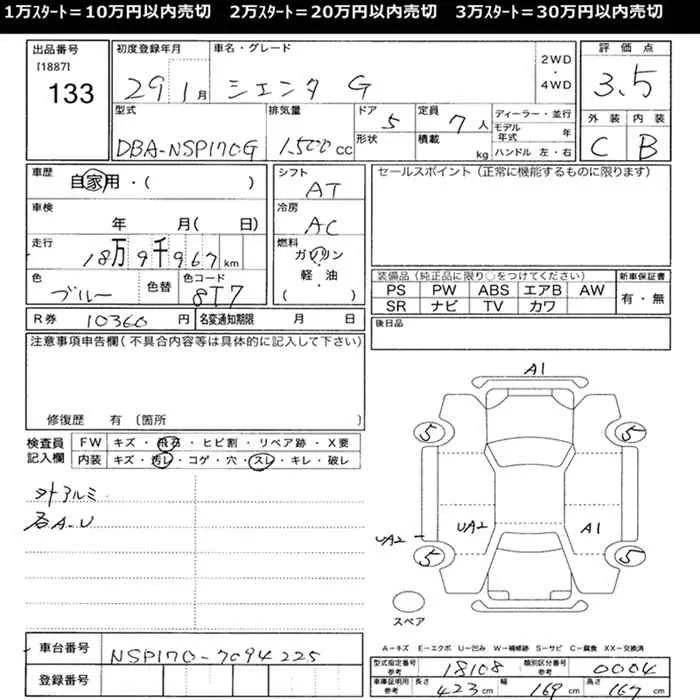 1万ｽﾀｰﾄ＝10万円以内売切　2万ｽﾀｰﾄ＝20万円以内売切　3万ｽﾀｰﾄ＝30万円以内売切
出品番号 [1887] 133
初度登録年月 29 1月
車名・グレード シエンタ G
2WD・4WD
評価点 3.5
外装 C 内装 B
型式 DBA-NSP170G
排気量 1500cc
ドア 5 形状
定員 7人 積載 kg
ディーラー・並行
モデル年式 年
ハンドル 左・右
車歴 自家用・( )
車検 年 月( 日)
走行 18万9千967km
色 ブルー 色替 色コード 8T7
シフト AT
冷房 AC
燃料 ガソリン
軽・油
( )
セールスポイント（正常に機能するものに限ります）
装備品（純正品に限り○をつけてください）
PS PW ABS エアB AW
SR ナビ TV カワ
新車保証書 有・無
R券 10360円 名変通知期限 月 日
後日品
注意事項申告欄(不具合内容等は具体的に記入して下さい)
修復歴 有 〔箇所 〕
検査員記入欄
FW キズ・飛石・ヒビ割・リペア跡・X要
内装 キズ・汚レ・コゲ・穴・スレ・キレ・破レ
外アルミ
各A-U
A1
5 5
UA2 UA2 A1
5 5
スペア
車台番号 NSP170-7094225
登録番号
A－キズ E－エクボ U－凹み W－補修跡 S－サビ C－腐食 XX－交換済
型式指定番号 参考 18108 類別区分番号 参考 0004
車庫証明用 参考 長さ 423cm 幅 169cm 高さ 167cm